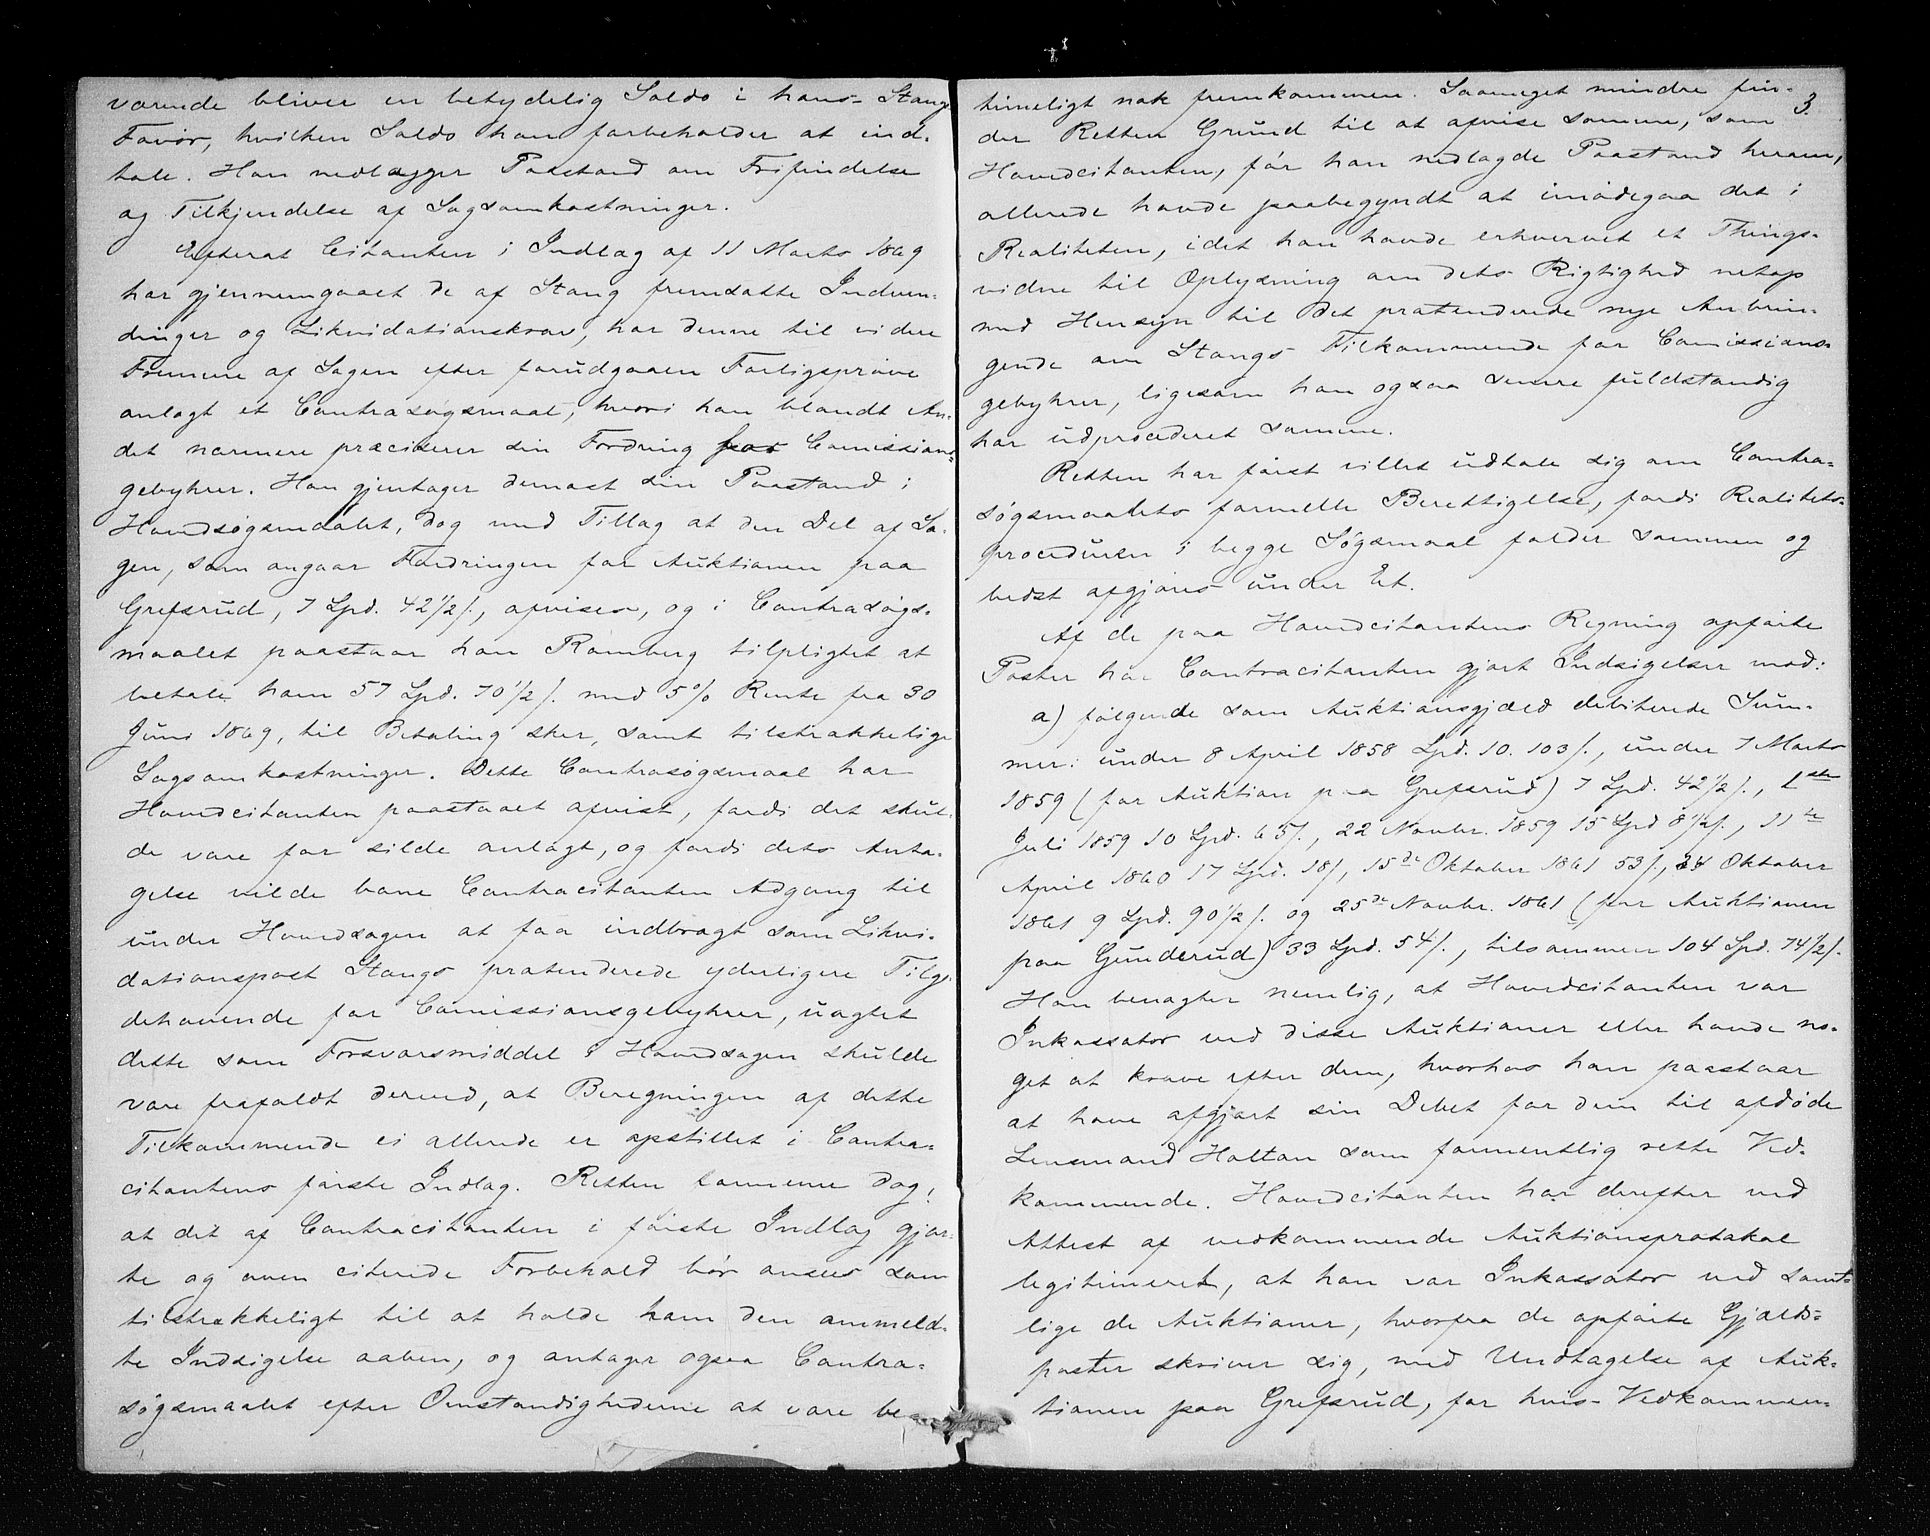 værende bliver en betydelig Saldo i hans – Stangs
Favør, hvilken Saldo han forbeholder at ind-
tale. Han nedlægger Paastand om Frifindelse
og Tilkjendelse af Sagsomkostninger.
Efterat Citanten i Indlæg af 11 Marts 1869
har gjennemgaaet de af Stang fremsatte Indven-
dinger og Likvidationskrav, har denne til videre
Fremme af Sagen efter forudgaaen Forligsprøve
anlagt et Contrasøgsmaal, hvori han blandt An-
det nærmere præciserer sin Fordring for Comissions-
gebyhrer. Han gjentager dernæst sin Paastand i
Hovedsøgsmaalet, dog med Tillæg at den Del af Sa-
gen, som angaar Fordringen for Auktionen paa
Grefsrud, 7 Spd. 42½ s., afvises, og i Contrasøgs-
maalet paastaar han Ramberg tilpligtet at
betale ham 57 Spd. 70½ s. med 5% Rente fra 30
Juni 1869, til Betaling sker, samt tilstrækkelige
Sagsomkostninger. Dette Contrasøgsmaal har
Hovedcitanten paastaaet afvist, fordi det skul-
de være for silde anlagt, og fordi dets Anta-
gelse vilde bane Contracitanten Adgang til
under Hovedsagen at faa indbragt som Likvi-
dationspost Stangs prætenderede yderligere Tilgo-
dehavende for Comissionsgebyhrer, uagtet
dette som Forsvarsmiddel i Hovedsagen skulde
være frafaldt derved, at Beregningen af dette
Tilkommende ei allerede er opstillet i Contra-
citantens første Indlæg. Retten formener dog,
at det af Contracitanten i første Indlæg gjor-
te og oven citerede Forbehold bør ansees som
tilstrækkeligt til at holde ham den anmeld-
te Indsigelse aaben, og antager ogsaa Contra-
søgsmaalet efter Omstændighederne at være be-
3
timeligt nok fremkommen. Saameget mindre fin-
der Retten Grund til at afvise samme, som
Hovedcitanten, før han nedlagde Paastand herom,
allerede havde paabegyndt at imødegaa det i
Realiteten, idet han havde erhvervet et Things-
vidne til Oplysning om dets Rigtighed netop
med Hensyn til det prætenderede nye Anbrin-
gende om Stangs Tilkommende for Comissions-
gebyhrer, ligesom han ogsaa senere fuldstændig
har udprocederet samme.
Retten har først villet udtale sig om Contra-
søgsmaalets formelle Berettigelse, fordi Realitets-
proceduren i begge Søgsmaal falder sammen og
bedst afgjøres under Et.
Af de paa Hovedcitantens Regning opførte
Poster har Contracitanten gjort Indsigelser mod:
a) følgende som Auktionsgjæld debiterede Sum-
mer: under 8 April 1858 Spd. 10. 103 s., under 7 Marts
1859 (for Auktion paa Grefsrud) 7 Spd. 42½ s., 1ste
Juli 1859 10 Spd. 65 s., 22 Novbr. 1859 15 Spd 8½ s., 11te
April 1860 17 Spd. 18 s, 15de Oktober 1861 53 s., 24 Oktober
1861 9 Spd. 90½ s. og 25de Novbr. 1861 (for Auktionen
paa Gunderud) 33 Spd. 54 s., tilsammen 104 Spd. 74½ s.
Han benægter nemlig, at Hovedcitanten var
Inkassator ved disse Auktioner eller havde no-
get at kræve efter dem, hvorhos han paastaar
at have afgjort sin Debet for dem til afdøde
Lensmand Holtan som formentlig rette Ved-
kommende. Hovedcitanten har derefter ved
Attest af vedkommende Auktionsprotokol
legitimeret, at han var Inkassator ved samt-
lige de Auktioner, hvorfra de opførte Gjælds-
poster skriver sig, med Undtagelse af Auk-
tionen paa Grefsrud, for hvis Vedkommen-